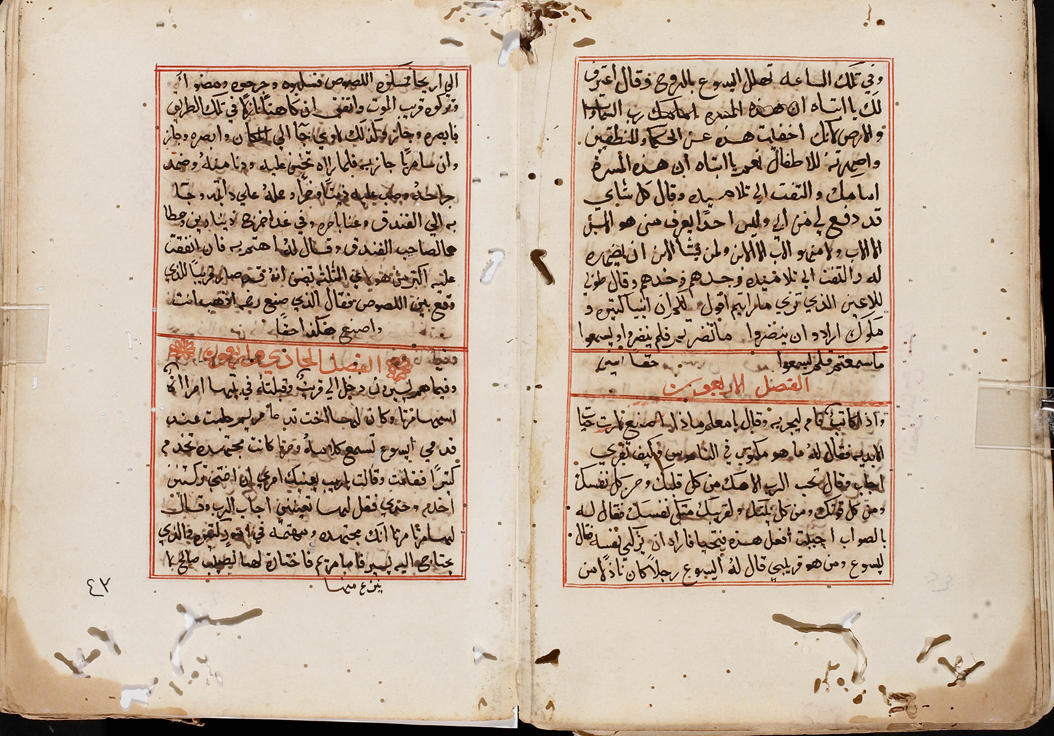 وفي تلك الساعه تهلل اليسوع بالروح وقال اعترف
لك يا ابتاه ان هذه المسره امامك رب السما وا
والارض لانك اخفيت هذه عن الحكما والمنطقين
واظهرتهم للاطفال نعم يا ابتاه ان هذه المسره
امامك والتفت الي تلاميده وقال كل شاي
قد دفع لي من ابي وليس احدًا يعرف من هو الابن
الا الاب ولا من هو الاب الا الابن ولمن يشا الابن ان يظهره
له والتفت الي تلاميده وحدهم وقال طوبى
للاعين الذي تري ما رايتم اقول لكم ان انبيا كتيره و
ملوك ارادو ان ينضروا ما تنضرتم فلم ينضروا ويسمعوا
ما سمعتم فلم يسمعوا حقا امين
الفصل الاربعون
واذا كاتب قام ليجربه وقال يا معلم ماذا اصنع لارت حيا
الابديه فقال له ما هو مكتوب في الناموس فكيف تقري
اجاب وقال تحب الرب الاهك من كل قلبك ومن كل نفسك
ومن كل قوتك ومن كل نيتك ولقريبك مثل نفسك فقال له
بالصواب اجبت افعل هذه فتحيا فاراد ان يزكي نفسه قال
ليسوع ومن هو قريبي قال له اليسوع رجلًا كان نازلًا من
الي اريحا اللصوص فسلبوه وجرحوه ومضوا
وتركوه قريب الموت واتفق ان كاهنًا نازلًا في تلك الطريق
فابصره وجاز وكذلك لاوي جا الي المكان وابصره وجاز
وان سامريًا جاز به فلما راه تحنن عليه ودنا منه وضمد
جراحه وصب عليه زيتًا وخمرًا وحمله علي دابته وجا
به الي الفندق وعنا بامره وفي غد اخرج دينارين وعطا
هما لصاحب الفندق وقال له اهتم به فان انفقت
عليه اكتر من هو لاي التلته تضن انه قد صار قريبًا للذي
وقع بين اللصوص فقال الذي صنع رحمه اذهب انت
واصنع هكذا حقا
الفصل الحادي والاربعون
وفيما هم يسيرون دخل الي قريه وقبلته في بيتها امراه
اسمها مرتا وكان لها اخت تدعا مريم جلست عند
قدمي ايسوع تسمع كلامه ومرتا كانت مجتهده تخدم
كتيرًا فقامت وقالت يا رب يعنيك امري ان اختي تركتني
اخدم وحدي فقل لها تعينني اجاب الرب وقال
لها مرتا مرتا انك مجتهده ومهتمه في والذي
يحتاج اليه يسير فاما مريم فاختارت لها نصيب صالح لا
ينزع منها
٤٣